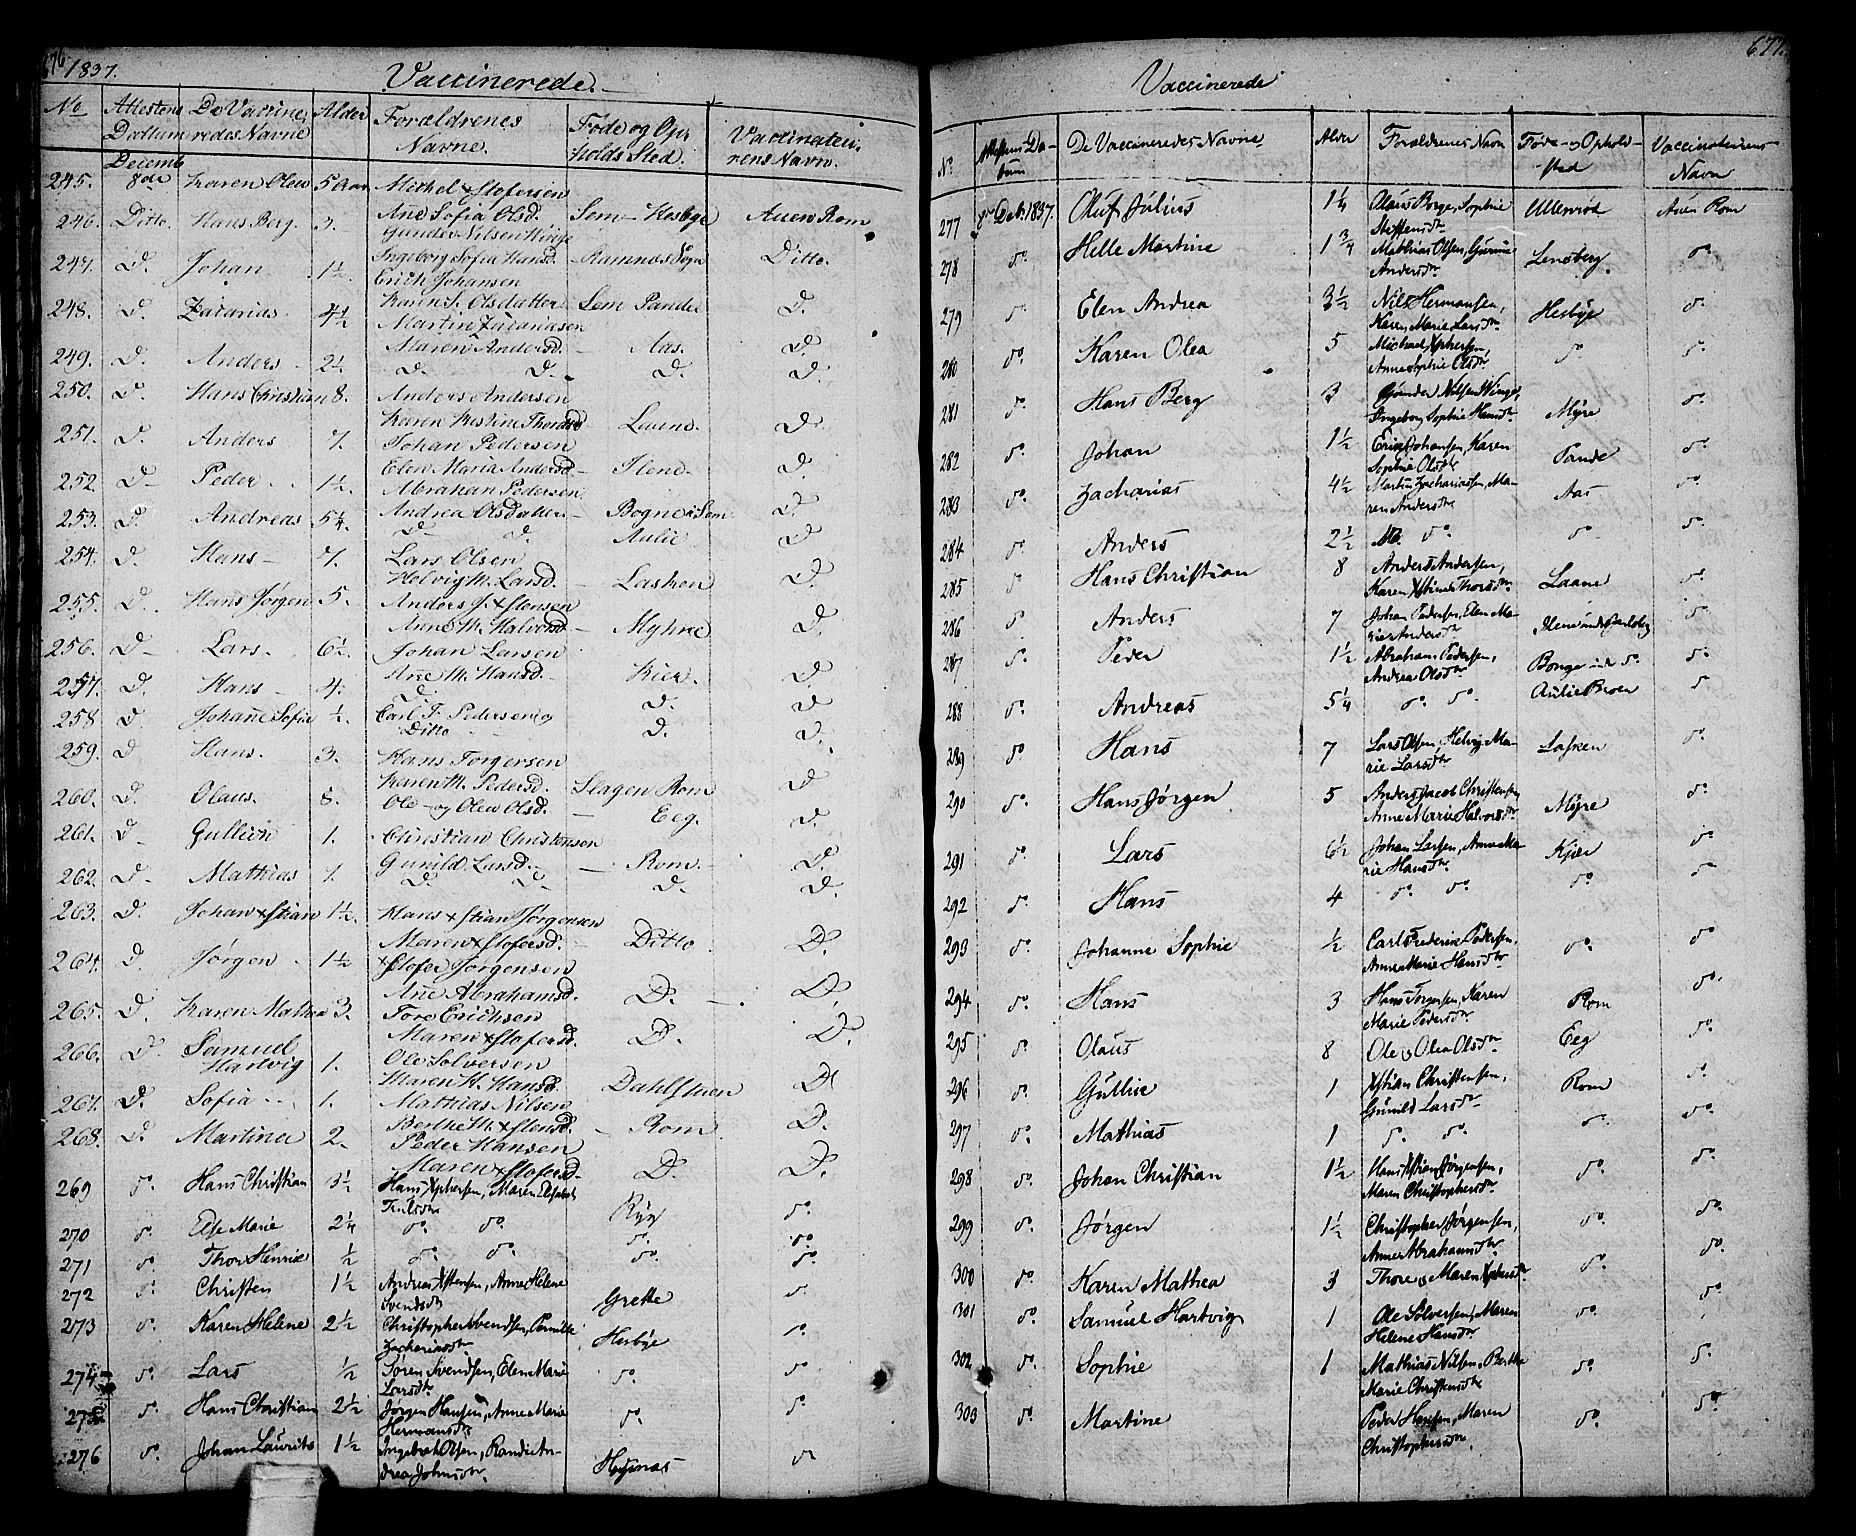 676 1837. Vaccinerede.
No Attestens Dattum De Vaccine, redes Navne Alder Foræeldrenes Navne. Føde og Op, holds Sted. Vaccinateu, rens Navn.
Decemb
245. 8de Karen Olea 5 Aar Michel Xstofersen
Añe Sofia Olsd. Sem - Hesbye Auen Rom
246. Ditto. Hans Berg. 3. Gunder Nilsen Winge
Ingeborg Sofia Hansd. Ramnæs Sogn Ditto.
247. D. Johan 1½ Erich Johansen
Karen S. Olsdatter Sem Pande D.
248. D. Zacarias 4½ Martin Zacariasen
Maren Andersd. - Aas. D.
249. D. Anders 2½ D. D. D. D.
250. D. Hans Christian 8. Anders Andersen
Karen Kestine Thorsd Laune. D.
251. D. Anders 7. Johan Pedersen
Elen Maria Andersd - Ilene. D
252. D- Peder 1½. Abrahan Pedersen
Andrea Olsdatter - Bogne i Sem D
253. D. Andreas 5¼. D D. Aulie D
254. D. Hans - 7. Lars Olsen
Helvig M. Larsd. - Lasken D
255. D. Hans Jørgen 5. Anders J. Xstensen
Anne M. Halvorsd - Myhre D.
256. D- Lars. 6½ Johan Larsen
Añe M. Hansd. Kier. D
257. D. Hans - 4. D D. D
258 D Johañe Sofie ½. Carl F. Pedersen og
Ditto D. D.
259. D Hans. 3. Hans Torgersen
Karen M. Pedersd. Slagen Rom D
260. D. Olaus. 8. Ole og Olea Olsd. - Eeg. D.
261. D Gullich 1. Christian Christensen
Gunild Larsd. - Rom. D.
262. D- Mathias 1. D. D. D. D.
263. D. Johan Xstian 1½. Hans Xstian Jørgensen
Maren Xstofersd. - Ditto D.
264. D. Jørgen 1½ Xstofer Jørgensen
Añe Abrahamsd. D. D.
265. D. Karen Mathea 3. Tore Erichsen
Maren Xstofersd. D. D.
266. D. Samuel Hartvig 1. Ole Solversen
Maren H. Hansd. Dahlstuen D
267. D. Sofia 1. Mathias Nilsen
Berthe M. Xstensd. - Rom. D.
268. D. Martinea 2. Peder Hansen
Maren Xstofersd. D. D.
269 do. Hans Christian 3½ Hans Xphersen, Maren Elisabet
Trulsdtr Ryg do.
270 do. Else Marie 2¼ do. do. do. do.
271 do. Thor Henric ½ do. do. do. do.
272 do. Christen 1½ Andreas Xstensen, Anne Helene
Svendsdtr Grette do.
273 do. Karen Helene 2½ Christopher Svendsen, Pernille
Zachariasdtr Hesbye do.
274 do. Lars ½ Søren Svendsen, Elen Marie
Larsdtr do. do.
275 do. Hans Christian 2½ Jørgen Hansen, Anne Marie
Hermansdtr do. do.
276 do. Johan Laurits 1½ Ingebret Olsen, Randi An-
drea Johnsdtr. Hognæs do
677.
Vaccinerede
No. Attestens Da- tum De Vaccineredes Navne Alder Foraeldrenes Navn Føde- og Ophold- sted Vaccinateurens Navn
277 8de Decbr. 1837. Oluf Julius 1¼ Olaus Borge, Sophie
Steffensdtr Ullerød Auen Rom
278 do. Helle Martine 1¾ Mathias Olsen, Gurine
Andersdtr Lensberg. do.
279 do. Elen Andrea 3½ Nils Hermansen,
Karen Marie Larsdtr. Hesbye do
280 do. Karen Olea 5 Michael Xphersen,
Anne Sophie Olsdtr. do. do.
281 do. Hans Berg 3 Gunder Nilsen Winge,
Ingeborg Sophie Hansdtr. Myre do.
282 do. Johan 1½ Erik Johansen, Karen
Sophie Olsdtr Pande do
283 do. Zacharias 4½ Martin Zachariassen, Ma-
ren Andersdtr. Aas do.
284 do. Anders 2½ do. do. do.
285 do Hans Christian 8 Anders Andersen,
Karen Xstine Thorsdtr. Laane do.
286 do Anders 7 Johan Pedersen, Elen Ma-
rie Andersdtr. do.
287 do. Peder 1½ Abraham Pedersen,
Andrea Olsdtr. Bonge do. do.
288 do. Andreas 5¼ do. do. Aulie do
289 do Hans 7 Lars Olsen, Helvig Ma-
rie Larsdtr Lasken do.
290 do. Hans Jørgen 5 Anders Jacob Christensen
Anne Marie Halvorsdtr. Myre do.
291 do. Lars 6½ Johan Larsen, Anne Ma-
rie Hansdtr. Kjær do
292 do. Hans 4 do. do. do. do
293 do. Johanne Sophie ½ Carl Frederik Pedersen,
Anne Marie Hansdtr do. do
294 do. Hans 3 Hans Torgersen, Karen
Marie Pedersdtr. Rom do.
295 do. Olaus 8 Ole og Olea Olsdtr. Eeg do.
296 do. Gullie 1 Xstian Christensen,
Gunild Larsdtr. Rom do.
297 do. Mathias 1 do. do. do. do.
298 do. Johan Christian 1½ Hans Xstian Jørgensen,
Maren Christophersdtr. do. do.
299 do. Jørgen 1½ Christopher Jørgensen,
Anne Abrahamsdtr. do. do.
300 do. Karen Mathea 3 Thore og Maren Xphersdtr. do. do.
301 do. Samuel Hartvig 1 Ole Solversen, Maren
Helene Hansdtr. do. do.
302 do. Sophie 1 Mathias Nilsen, Berthe
Marie Christensdtr. do. do.
303 do. Martine Peder Hansen, Maren
Christophersdtr. do. do.